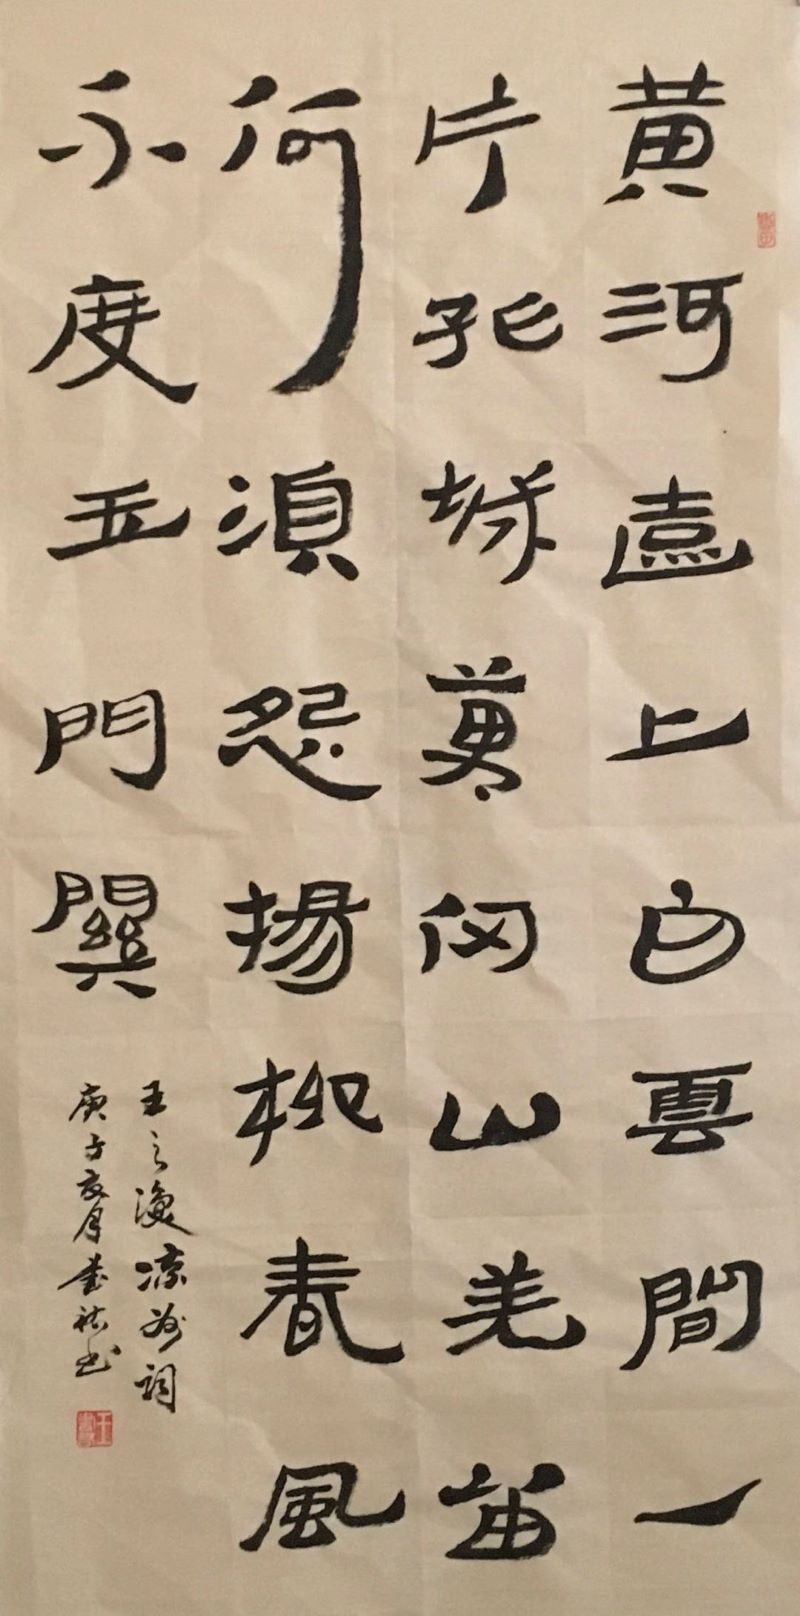 黄河遠上白雲間一
片孤城萬仞山羌笛
何須怨揚柳春風
不度玉門關
王之渙凉州詞
庚子月书